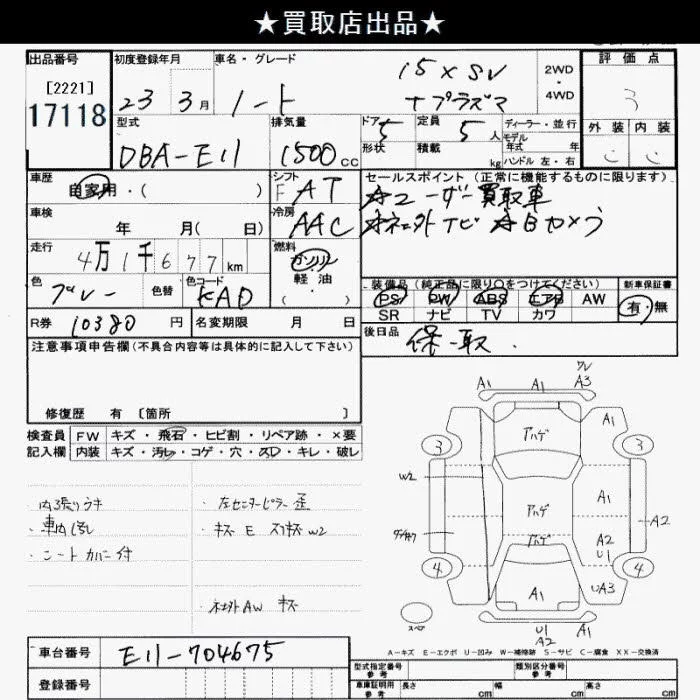 ★買取店出品★
出品番号 初度登録年月 車名・グレード 15×SV 2WD・4WD 評価点
[2221]
17118 23年3月 ノート +プラズマ 3
型式 排気量 ドア 5 定員 5人 ディーラー・並行 外装 内装
DBA-E11 1500cc 形状 積載 kg モデル年式 年 ハンドル 左・右
車歴 シフト セールスポイント(正常に機能するものに限ります)
自家用・( ) F AT ☆ユーザー買取車
車検 年 月( 日) 冷房 AAC ☆ネ土外ナビ ☆Bカメラ
走行 4万1千677km 燃料 ガソリン
軽・油
・( )
色 ブルー 色替 色コード 装備品(純正品に限り○をつけてください) 新車保証書
PS PW ABS エアB AW 有・無
SR ナビ TV カワ
R券 10380円 名変期限 月 日 後日品 保-取
注意事項申告欄(不具合内容等は具体的に記入して下さい)
修復歴 有 [箇所 ]
検査員 FW キズ・飛石・ヒビ割・リペア跡・×要
記入欄 内装 キズ・汚レ・コゲ・穴・スレ・キレ・破レ
・内張りウキ ・左センターピラー歪
・車内汚れ ・キズ E スリキズ W2
・シートカバー付
・ネ土外AW キズ
A1 A1 A3
3 A1 3
アハゲ
W2
アハゲ A1 A2
アハゲ A2
U1
4 A1 UA3 4
スペア U1 A1
A2
A-キズ E-エクボ U-凹み W-補修跡 S-サビ C-腐食 XX-交換済
車台番号 E11-704675
登録番号
型式指定番号 参考 類別区分番号 参考
車庫証明用 参考 長さ cm 幅 cm 高さ cm